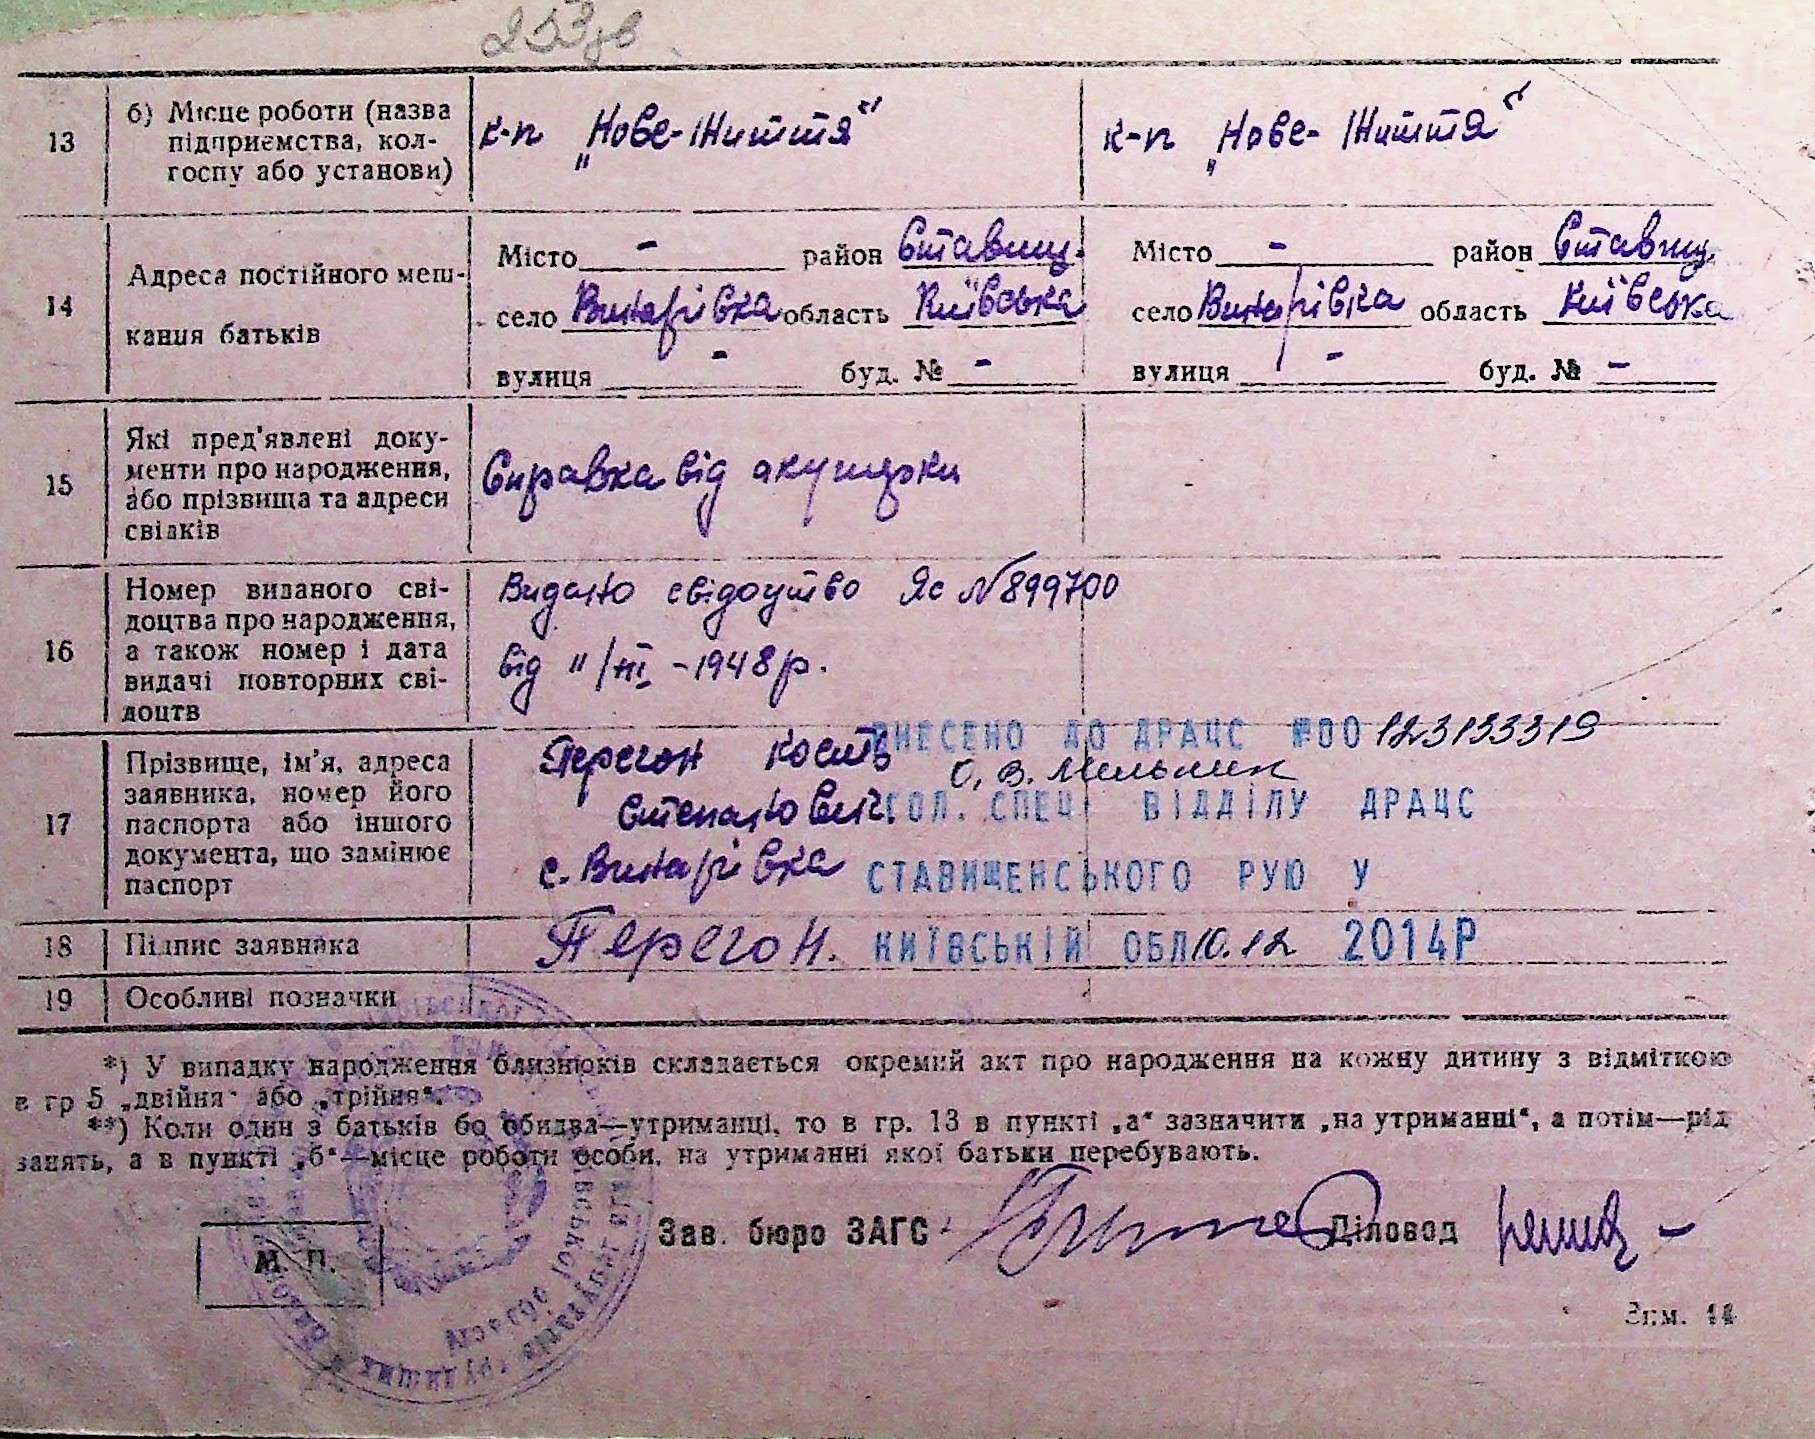 253 зв
13
б) Місце роботи (назва
підприємства, кол-
госпу або установи)
к-п „Нове-Життя“
к-п „Нове-Життя“
14
Адреса постійного меш-
кання батьків
Місто - район Ставищ.
село Винарівка область Київська
вулиця - буд. № -
Місто - район Ставищ.
село Винарівка область Київська
вулиця - буд. № -
15
Які пред'явлені доку-
менти про народження,
або прізвища та адреси
свідків
Справка від акушерки
16
Номер виданого сві-
доцтва про народження,
а також номер і дата
видачі повторних сві-
доцтв
Видано свідоцтво Яс №899700
від 11/III -1948р.
17
Прізвище, ім'я, адреса
заявника, номер його
паспорта або іншого
документа, що замінює
паспорт
Перегон Кость
Степанович
с. Винарівка
ВНЕСЕНО ДО ДРАЦС №00 123133319
О.В. Мельник
ГОЛ. СПЕЦ ВІДДІЛУ ДРАЦС
СТАВИЩЕНСЬКОГО РУЮ У
КИЇВСЬКІЙ ОБЛ 10.12 2014Р
18
Підпис заявника
Перегон.
19
Особливі позначки
*) У випадку народження близнюків складається окремий акт про народження на кожну дитину з відміткою
в гр 5 „двійня“ або „трійня“.
**) Коли один з батьків бо обидва—утриманці, то в гр. 13 в пункті „а“ зазначити „на утриманні“, а потім—рід
занять, а в пункті „б“—місце роботи особи, на утриманні якої батьки перебувають.
М. П.
Зав. бюро ЗАГС
Діловод
Зам. 14